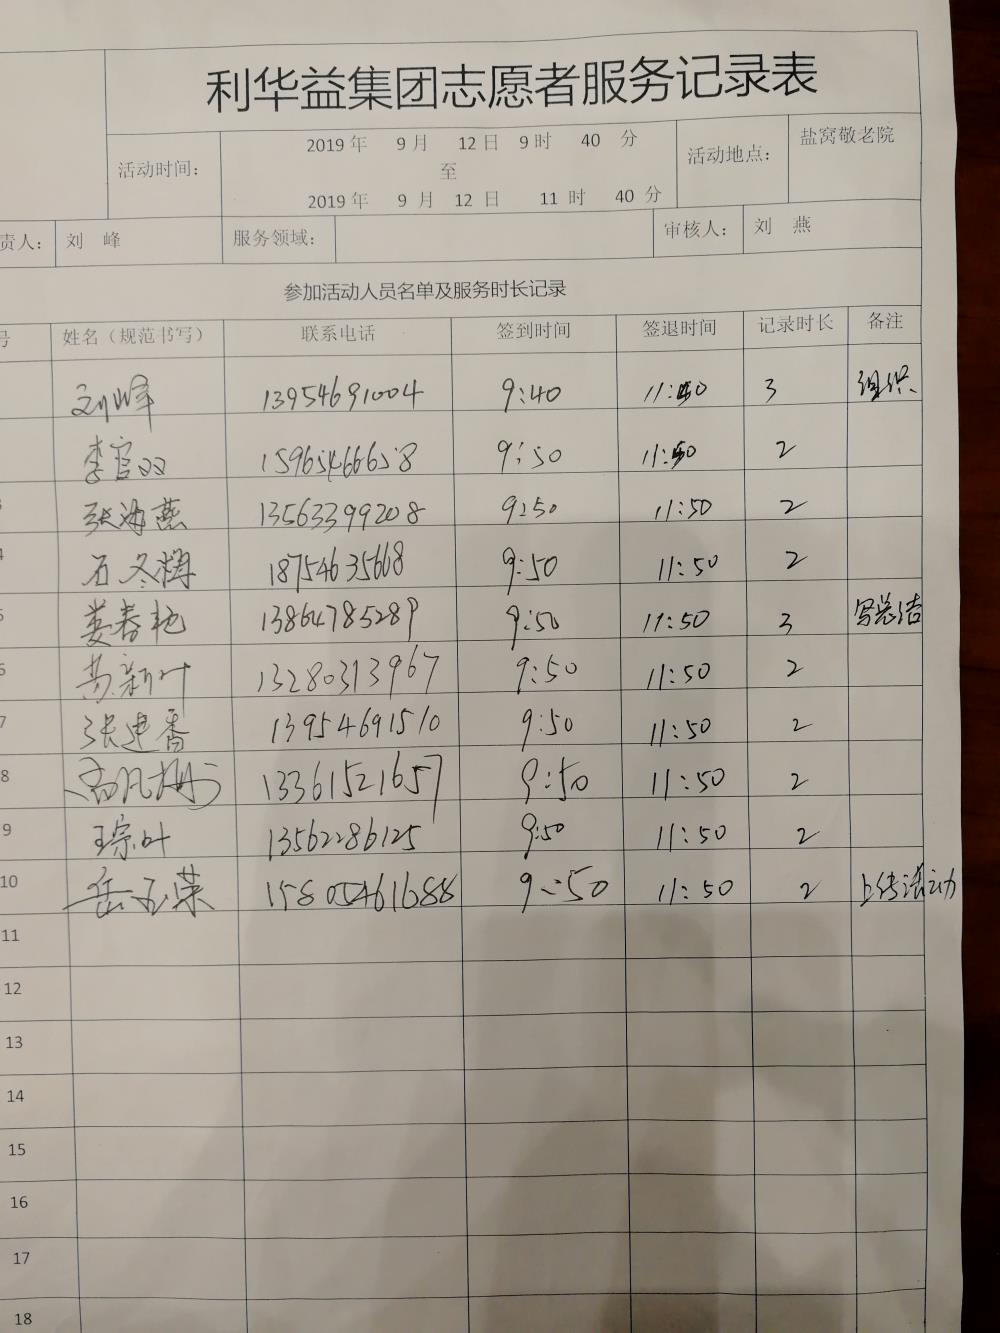 利华益集团志愿者服务记录表
活动时间： 2019 年 9 月 12 日 9 时 40 分 至 2019 年 9 月 12 日 11 时 40 分 活动地点： 盐窝敬老院
责人： 刘 峰 服务领域： 审核人： 刘 燕
参加活动人员名单及服务时长记录
号 姓名（规范书写） 联系电话 签到时间 签退时间 记录时长 备注
刘峰 13954691004 9:40 11:50 3 组织
李官双 15965466658 9:50 11:50 2
3 张海燕 13563399208 9:50 11:50 2
4 石冬梅 18754635668 9:50 11:50 2
5 娄春艳 13864785289 9:50 11:50 3 写总结
6 苏新叶 13280313967 9:50 11:50 2
7 张建香 13954691510 9:50 11:50 2
8 13361521657 9:50 11:50 2
9 王宗叶 13562286125 9:50 11:50 2
10 岳玉荣 15805461688 9:50 11:50 2 上传活动
11
12
13
14
15
16
17
18